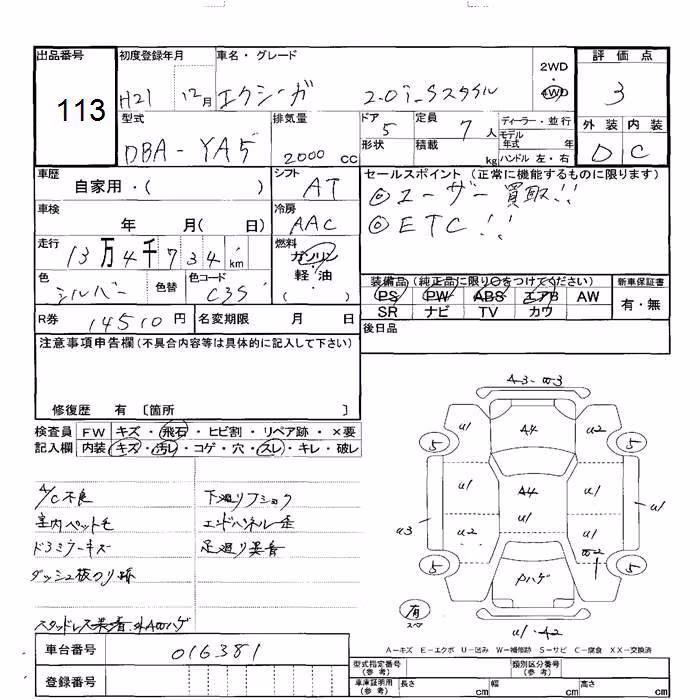 出品番号 初度登録年月 車名・グレード 評価点
113 H21 12月 エクシーガ 2.0i_Sスタイル 2WD 4WD 3
型式 排気量 ドア 定員 ディーラー・並行 外装 内装
DBA-YA5 2000 cc 5 7人 モデル年式 年 D C
形状 積載 kg ハンドル 左・右
車歴 シフト セールスポイント (正常に機能するものに限ります)
自家用・( ) AT ◎ユーザー買取!!
車検 冷房 ◎ETC!!
年 月( 日) AAC
走行 燃料
13万4千734km ガソリン
軽・油
( )
色 色替 色コード 装備品(純正品に限り○をつけてください) 新車保証書
シルバー C3S PS PW ABS エアB AW 有・無
SR ナビ TV カワ
R券 14510円 名変期限 月 日 後日品
注意事項申告欄(不具合内容等は具体的に記入して下さい)
修復歴 有 〔箇所 〕
検査員 FW キズ・飛石・ヒビ割・リペア跡・×要
記入欄 内装 キズ・汚レ・コゲ・穴・スレ・キレ・破レ
A/C不良 下廻りフショク
室内ペット毛 エンドパネル歪
ドラミラーキズ 足廻り異音
ダッシュ板のり跡
スタッドレス
A3・W3
U1 A4 U2
5 5
U1 A4 U1
U3 U2 U1 W2 U1
5 Pハゲ 5
有
スペア
U1・A2
A-キズ E-エクボ U-凹み W-補修跡 S-サビ C-腐食 XX-交換済
車台番号 016381
登録番号
型式指定番号(参考) 類別区分番号(参考)
車庫証明用(参考) 長さ cm 幅 cm 高さ cm